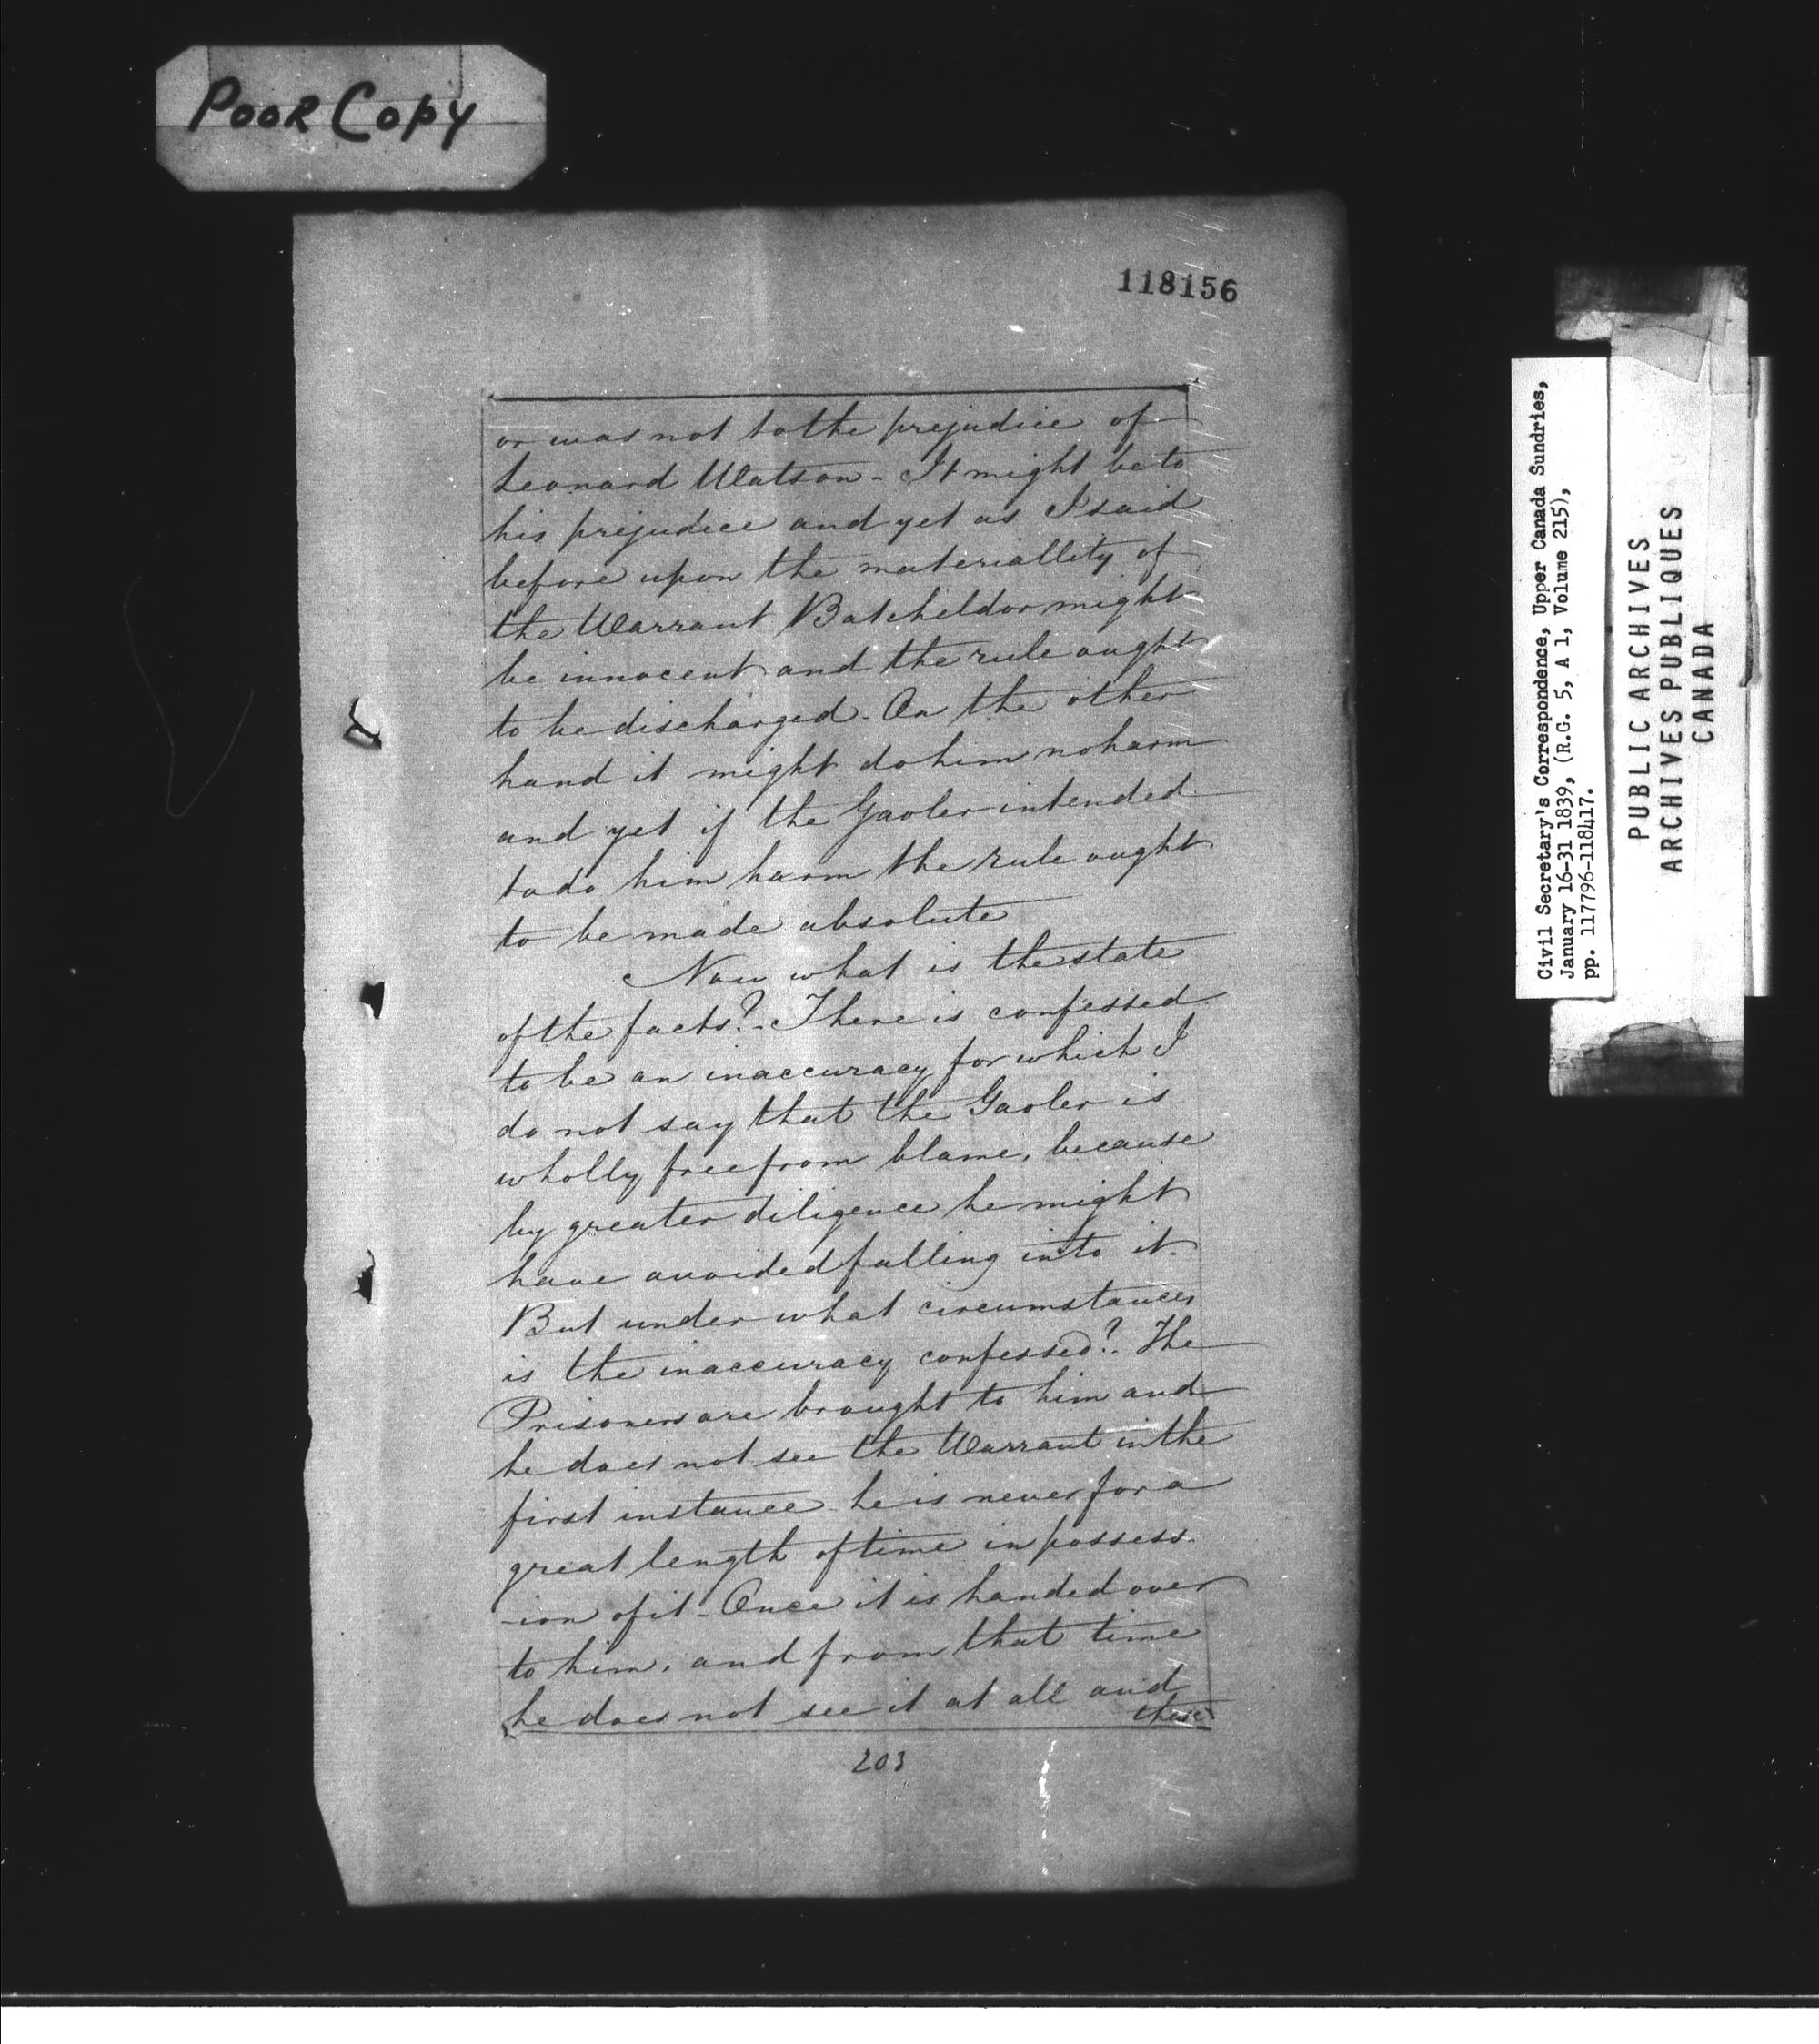 POOR COPY
118156
or was not to the prejudice of
Leonard Watson - It might be to
his prejudice and yet as I said
before upon the materiallity of
the Warrant Batcheldor might
be innocent and the rule ought
to be discharged - On the other
hand it might do him no harm
and yet if the Gaoler intended
to do him harm the rule ought
to be made absolute
Now what is the state
of the facts? - There is confessed
to be an inaccuracy for which I
do not say that the Gaoler is
wholly free from blame, because
by greater diligence he might
have avoided falling into it -
But under what circumstances
is the inaccuracy confessed? - The
Prisoners are brought to him and
he does not see the Warrant in the
first instance - he is never for a
great length of time in possess-
-ion of it - Once it is handed over
to him, and from that time
he does not see it at all and
these
203
Civil Secretary's Correspondence, Upper Canada Sundries,
January 16-31 1839, (R.G. 5, A 1, Volume 215),
pp. 117796-118417.
PUBLIC ARCHIVES
ARCHIVES PUBLIQUES
CANADA